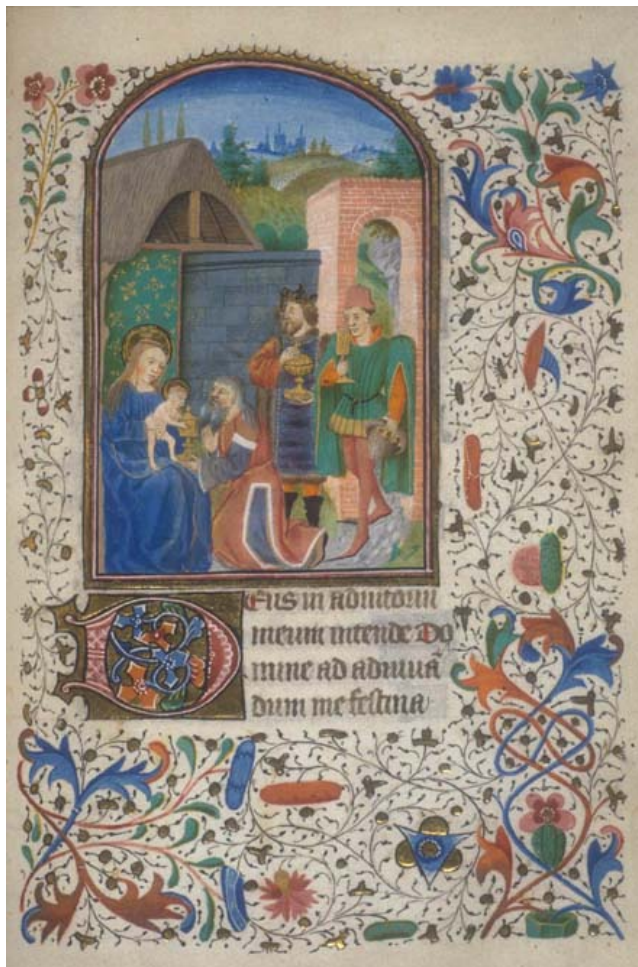 Deus in adiutoriu
meum intende Do
mine ad adiuuā
dum me festina